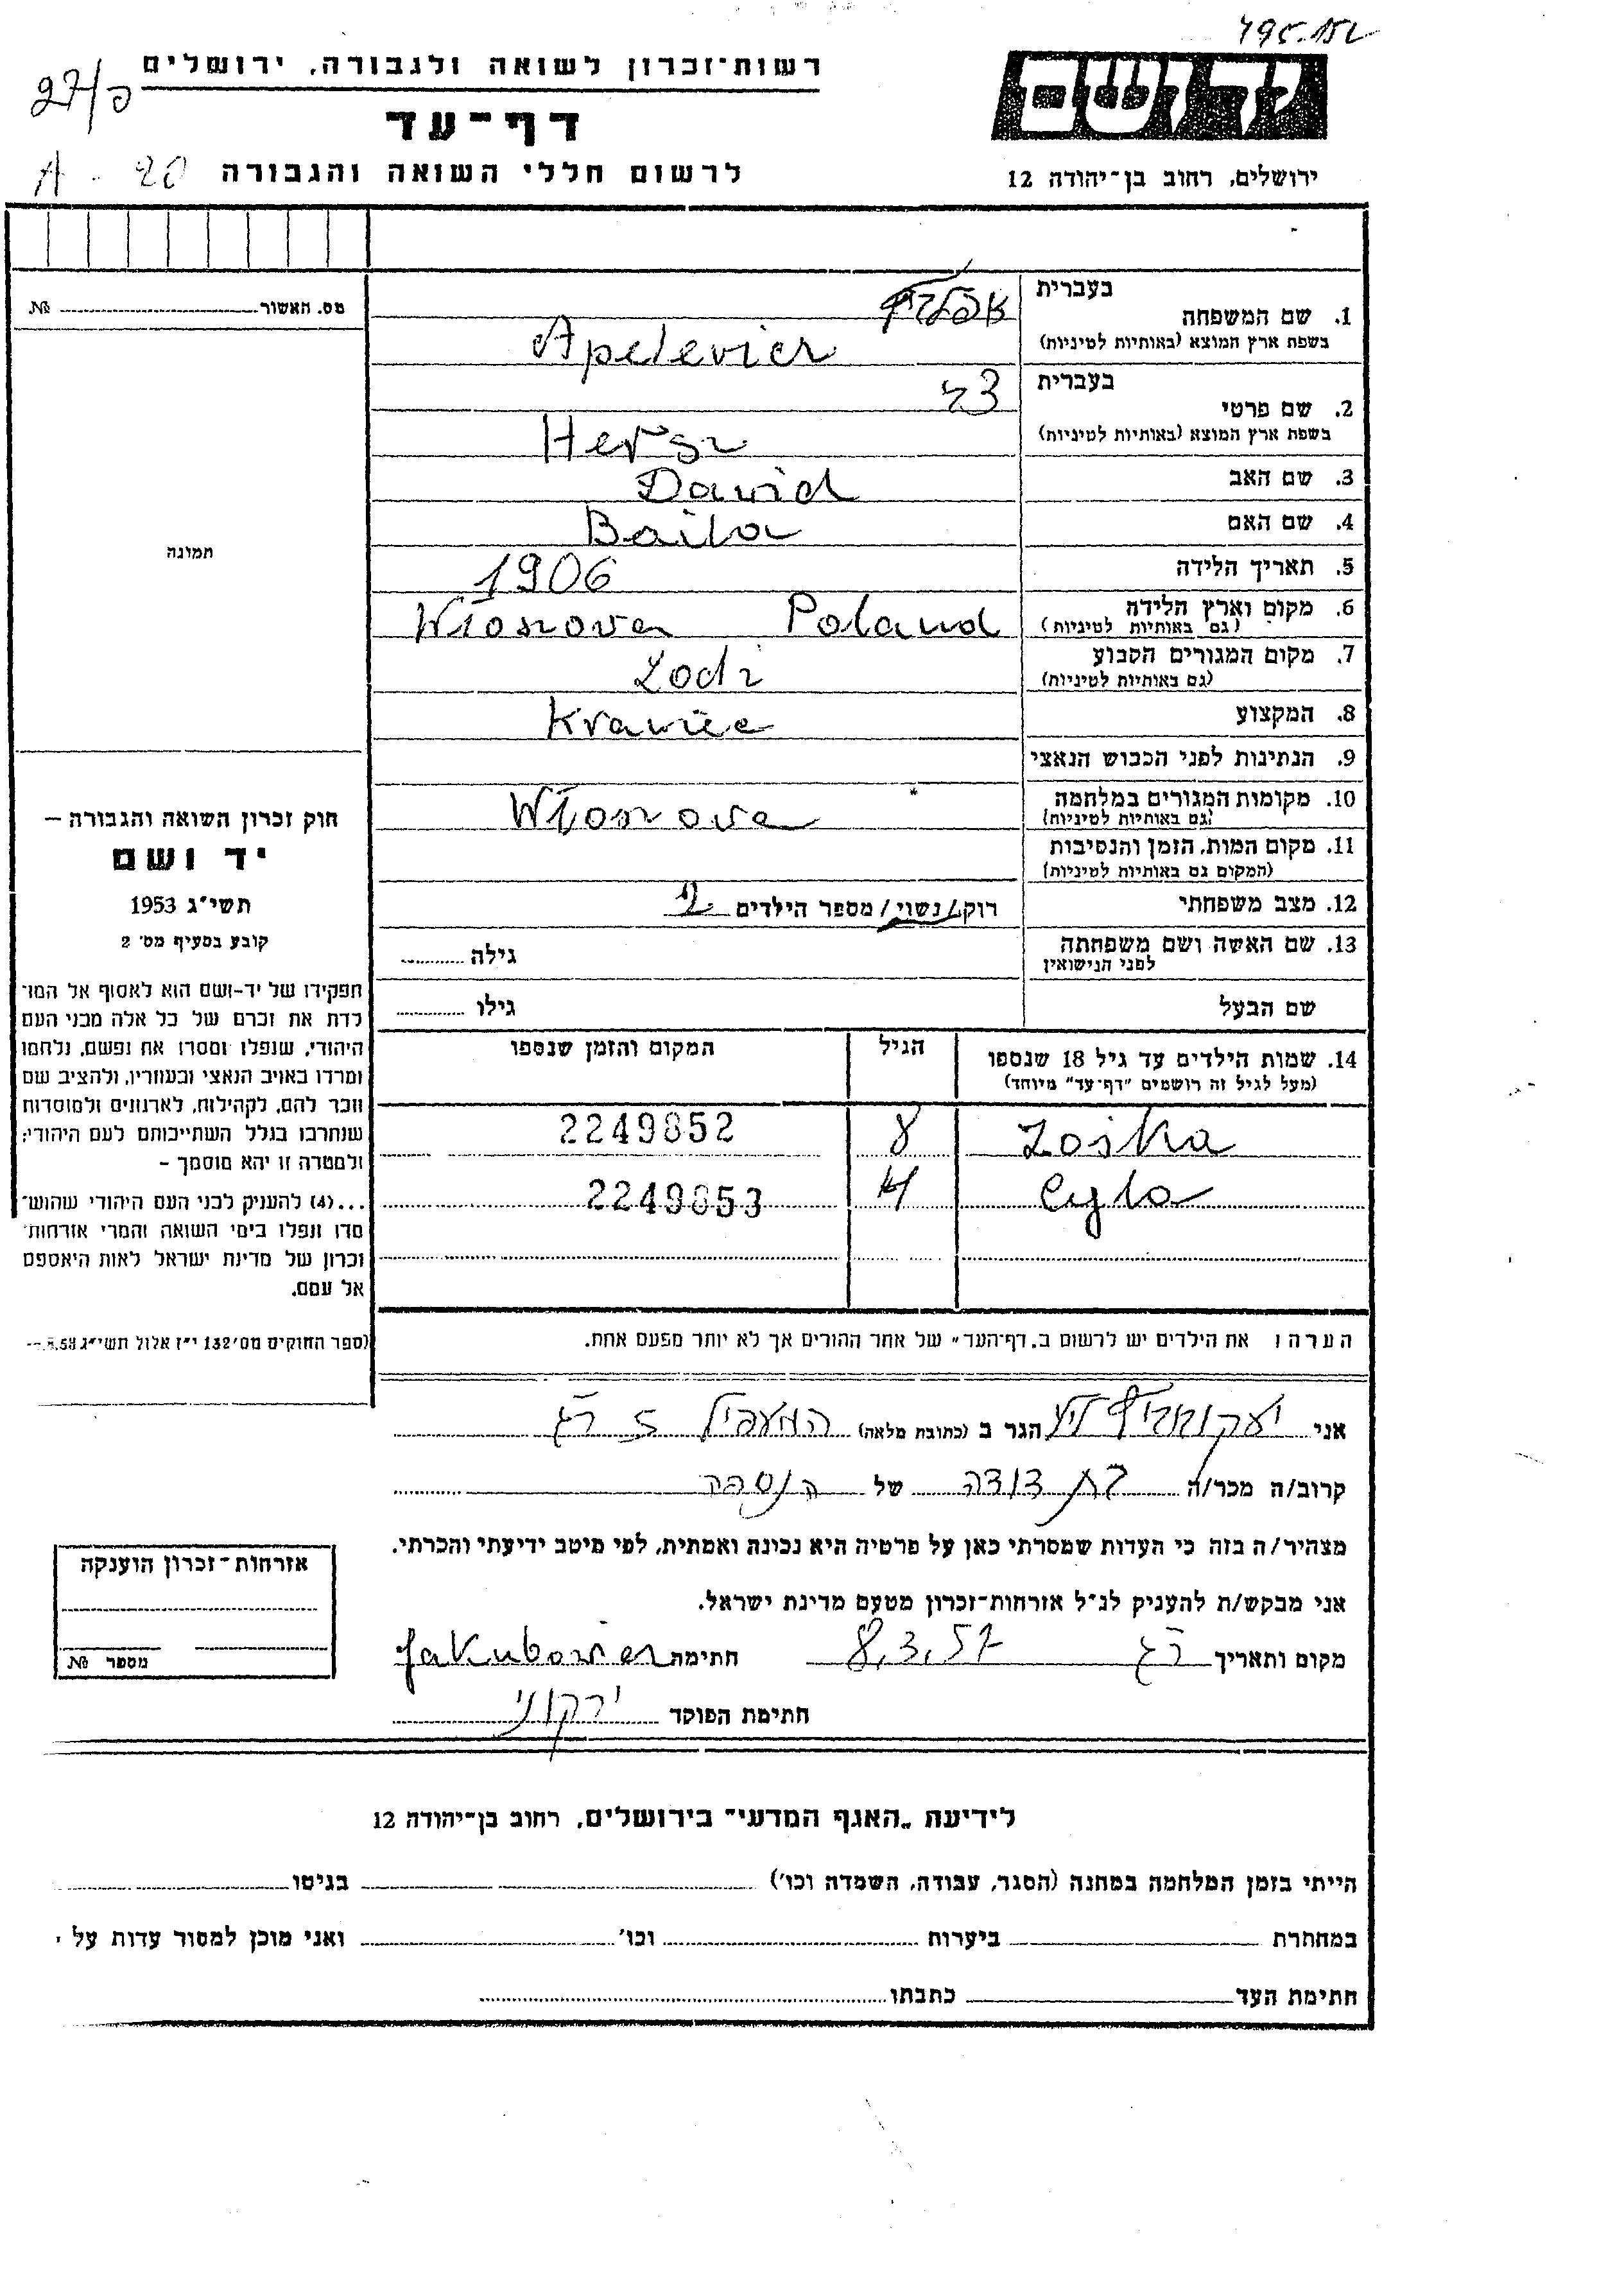 495.152
רשות־זכרון לשואה ולגבורה, ירושלים
27/
דף־עד
לרשום חללי השואה והגבורה
A - 20
יד ושם
ירושלים, רחוב בן־יהודה 12
מס. האשור № 
תמונה
חוק זכרון השואה והגבורה –
יד ושם
תשי״ג 1953
קובע בסעיף מס׳ 2
תפקידו של יד-ושם הוא לאסוף אל המו־
לדת את זכרם של כל אלה מבני העם
היהודי, שנפלו ומסרו את נפשם, נלחמו
ומרדו באויב הנאצי ובעוזריו, ולהציב שם
וזכר להם, לקהילות, לארגונים ולמוסדות
שנחרבו בגלל השתייכותם לעם היהודי;
ולמטרה זו יהא מוסמך –
...(4) להעניק לבני העם היהודי שהוש־
מדו ונפלו בימי השואה והמרי אזרחות־
זכרון של מדינת ישראל לאות היאספם
אל עמם.
(ספר החוקים מס׳ 132 י״ז אלול תשי״ג
1. שם המשפחה
בעברית
בשפת ארץ המוצא (באותיות לטיניות) Apelevicz
2. שם פרטי
בעברית צבי
בשפת ארץ המוצא (באותיות לטיניות) Hersz
3. שם האב Dawid
4. שם האם Baila
5. תאריך הלידה 1906
6. מקום וארץ הלידה Wloszova Poland
(גם באותיות לטיניות)
7. מקום המגורים הקבוע Lodz
(גם באותיות לטיניות)
8. המקצוע Krawiec
9. הנתינות לפני הכבוש הנאצי
10. מקומות המגורים במלחמה Wloszova
(גם באותיות לטיניות)
11. מקום המות, הזמן והנסיבות
(המקום גם באותיות לטיניות)
12. מצב משפחתי רוק/נשוי/מספר הילדים 2
13. שם האשה ושם משפחתה גילה
לפני הנישואין
שם הבעל גילו
14. שמות הילדים עד גיל 18 שנספו הגיל המקום והזמן שנספו
(מעל לגיל זה רושמים ״דף־עד״ מיוחד)
Zoska 8 2249852
Cyla 4 2249853
הערה: את הילדים יש לרשום ב„דף־העד״ של אחד ההורים אך לא יותר מפעם אחת.
אני הגר ב (כתובת מלאה) המעפיל 5 ר״ג
קרוב/ה מכר/ה בת דודה של הנספה
מצהיר/ה בזה כי העדות שמסרתי כאן על פרטיה היא נכונה ואמתית, לפי מיטב ידיעתי והכרתי.
אני מבקש/ת להעניק לנ״ל אזרחות־זכרון מטעם מדינת ישראל.
מקום ותאריך ר״ג 8.3.57 חתימת Jakubowicz
חתימת הפוקד ירקוני
אזרחות־זכרון הוענקה
מספר №
לידיעת „האגף המדעי״ בירושלים, רחוב בן־יהודה 12
הייתי בזמן המלחמה במחנה (הסגר, עבודה, השמדה וכו׳) בגיטו
במחתרת ביערות וכו׳ ואני מוכן למסור עדות על
חתימת העד כתבתו